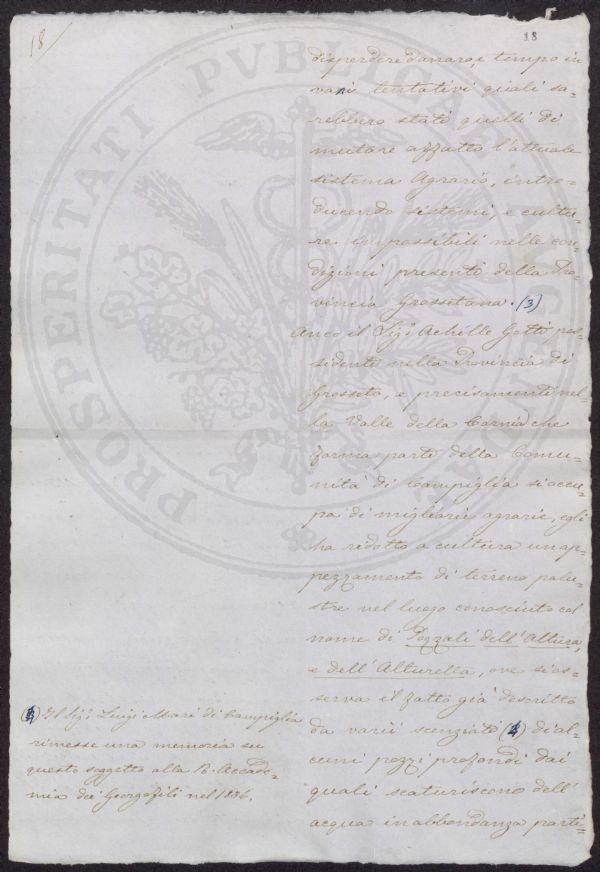 18/
18
disperdere danaro, e tempo in
varii tentativi quali sa-
rebbero stati quelli di
mutare affatto l'attuale
sistema Agrario, intro-
ducendo sistemi, e cultu-
re impossibili nelle con-
dizioni presenti della Pro-
vincia Grossetana. (3)
Anco il Sig: Achille Gotti pos-
sidente nella Provincia di
Grosseto, e precisamente nel-
la Valle della Cornia che
forma parte della Comu-
nità di Campiglia si occu-
pa di migliorie agrarie, egli
ha ridotto a cultura un ap-
pezzamento di terreno palu-
stre nel luogo conosciuto col
nome di Pozzali dell'Altura,
e dell'Alturetta, ove si os-
serva il fatto già descritto
da varii scenziati (4) di al-
cuni pozzi profondi dai
quali scaturiscono dell'
acqua in abbondanza parti-
(4) Il Sig: Luigi Mari di Campiglia
rimesse una memoria su
questo soggetto alla R. Accade-
mia dei Georgofili nel 1836.
PROSPERITATI PVBLICAE AVGENDAE